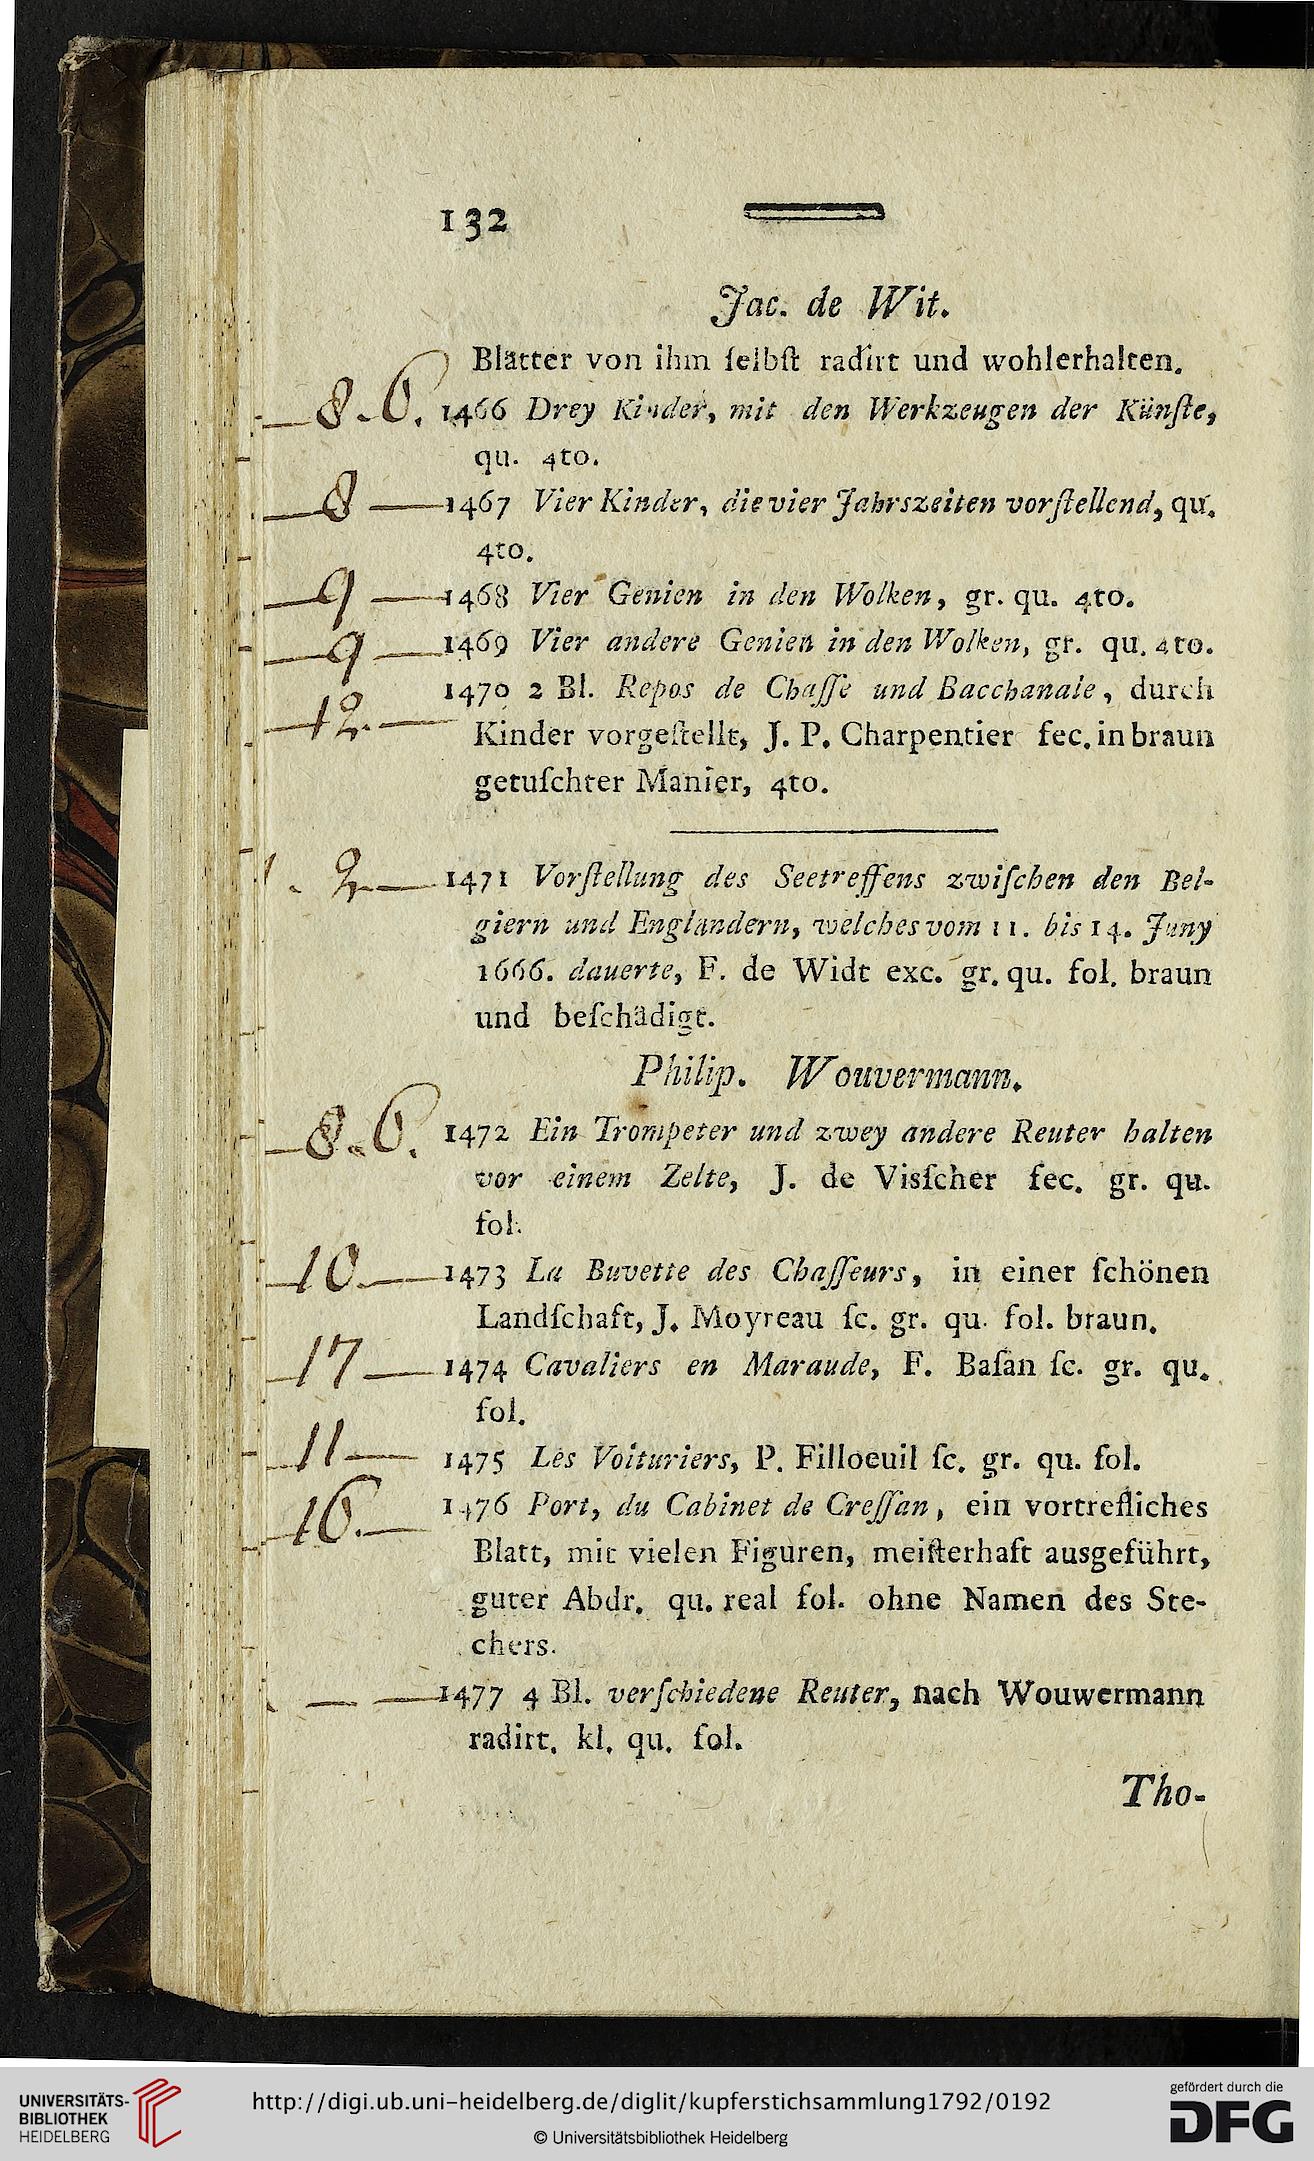 132
Jac. de Wit.
Blätter von ihm ſelbſt radirt und wohlerhalten.
— 8.6. 1466 Drey Kinder, mit den Werkzeugen der Künſte,
qu. 4to.
— 8 — 1467 Vier Kinder, die vier Jahrszeiten vorſtellend, qu.
4to.
— 9 — 1468 Vier Genien in den Wolken, gr. qu. 4to.
— 9 — 1469 Vier andere Genien in den Wolken, gr. qu. 4to.
1470 2 Bl. Repos de Chaſſe und Bacchanale, durch
— 12. — Kinder vorgeſtellt, J. P. Charpentier fec. in braun
getuſchter Manier, 4to.
1. 2 — 1471 Vorſtellung des Seetreffens zwiſchen den Bel-
giern und Engländern, welches vom 11. bis 14. Juny
1666. dauerte, F. de Widt exc. gr. qu. fol. braun
und beſchädigt.
Philip. Wouvermann.
— 8.6. 1472 Ein Trompeter und zwey andere Reuter halten
vor einem Zelte, J. de Visſcher fec. gr. qu.
fol.
— 10. — 1473 La Buvette des Chaſſeurs, in einer ſchönen
Landſchaft, J. Moyreau ſc. gr. qu. fol. braun.
— 17 — 1474 Cavaliers en Maraude, F. Baſan ſc. gr. qu.
fol.
— 11 — 1475 Les Voituriers, P. Filloeuil ſc. gr. qu. fol.
— 16. — 1476 Port, du Cabinet de Creſſan, ein vortrefliches
Blatt, mit vielen Figuren, meiſterhaft ausgeführt,
guter Abdr. qu. real fol. ohne Namen des Ste-
chers.
— — 1477 4 Bl. verſchiedene Reuter, nach Wouwermann
radirt. kl. qu. fol.
Tho-
UNIVERSITÄTS-
BIBLIOTHEK
HEIDELBERG
http://digi.ub.uni-heidelberg.de/diglit/kupferstichsammlung1792/0192
© Universitätsbibliothek Heidelberg
gefördert durch die
DFG